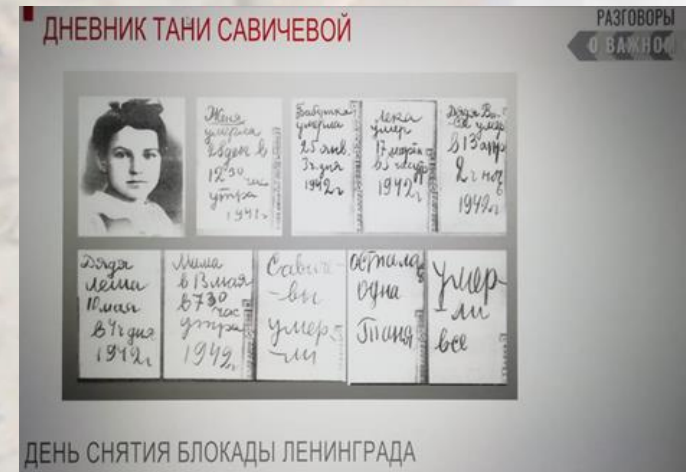 ДНЕВНИК ТАНИ САВИЧЕВОЙ
РАЗГОВОРЫ
О ВАЖНОМ
Женя
умерла
28 дек в
12 30 час
утра
1941 г
Бабушка
умерла
25 янв.
3 ч дня
1942 г
Лека
умер
17 марта
в 5 час утр
1942 г
Дядя Ва-
ся умер
в 13 апр
2 ч ноч
1942 г
Дядя
Леша
10 мая
в 4 ч дня
1942 г
Мама
в 13 мая
в 7 30
час
утра
1942 г
Савиче
-вы
умер
-ли
осталась
одна
Таня
умер
-ли
все
ДЕНЬ СНЯТИЯ БЛОКАДЫ ЛЕНИНГРАДА